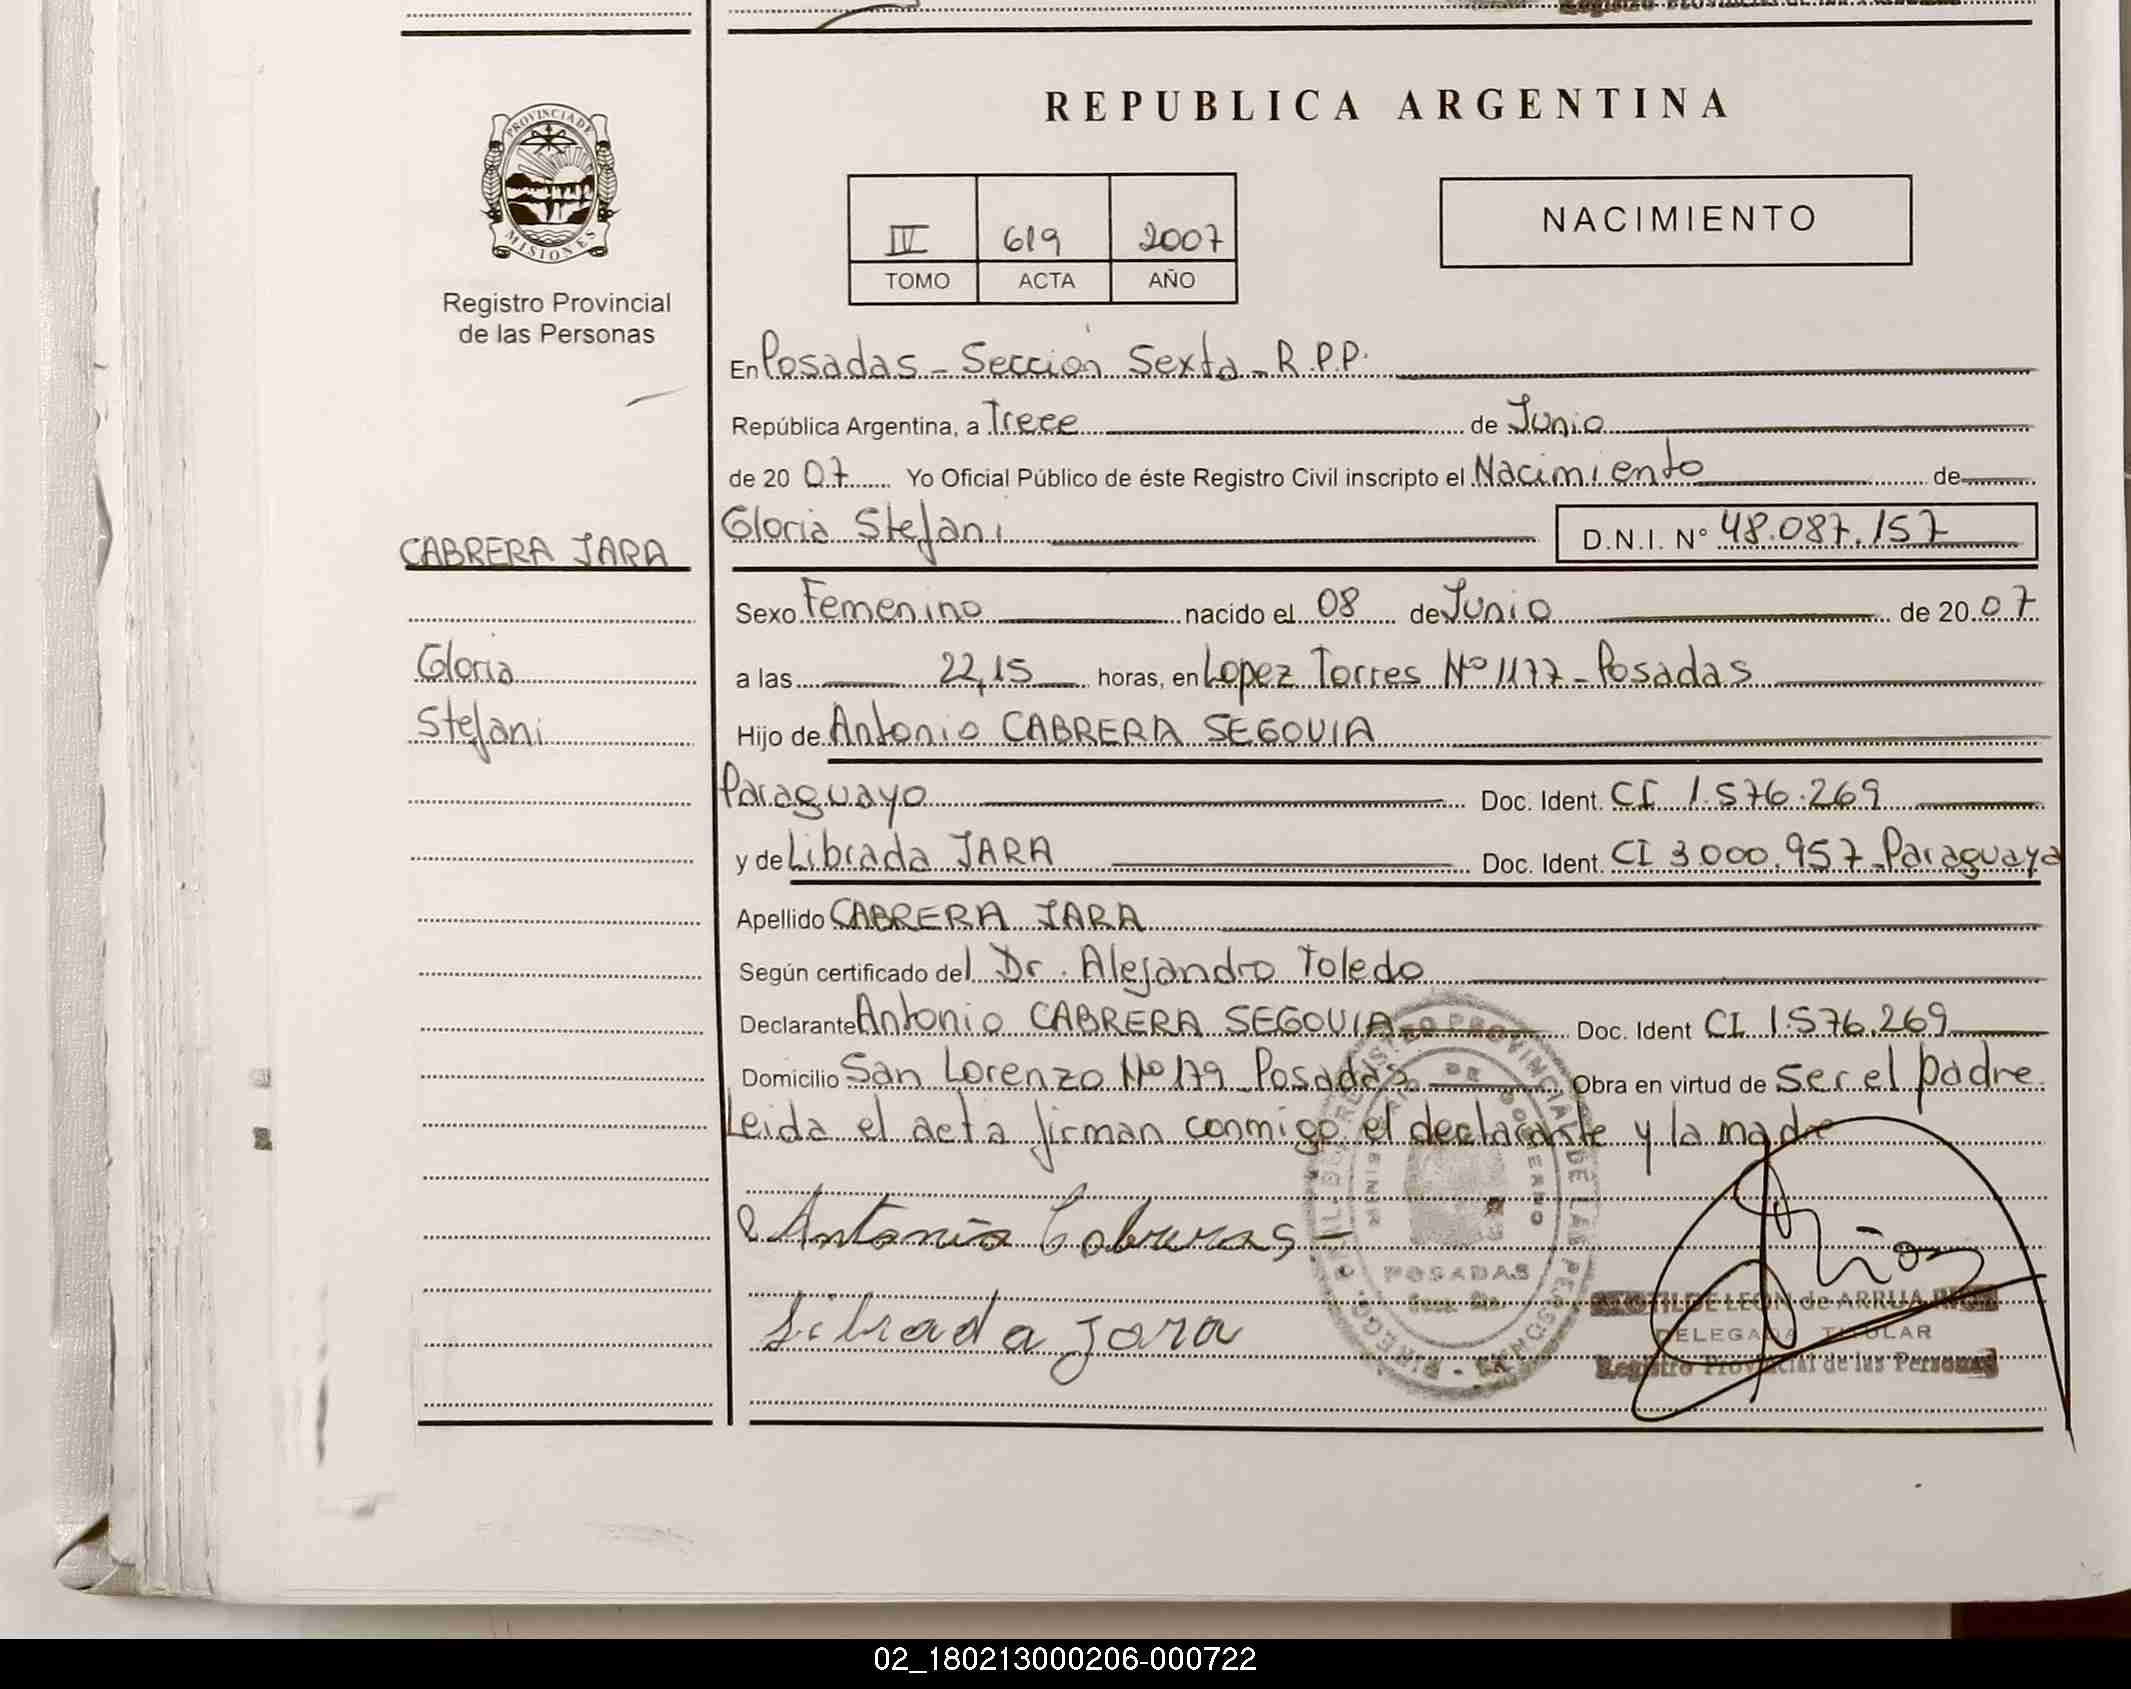 REPUBLICA ARGENTINA
PROVINCIA DE
MISIONES
Registro Provincial
de las Personas
IV 619 2007
TOMO ACTA AÑO
NACIMIENTO
En Posadas - Sección Sexta - R.P.P.
República Argentina, a Trece de Junio
de 20 07 Yo Oficial Público de éste Registro Civil inscripto el Nacimiento de
CABRERA JARA
Gloria Stefani D.N.I. N° 48.087.157
Sexo Femenino nacido el 08 de Junio de 20 07
Gloria
a las 22,15 horas, en Lopez Torres Nº 1177 - Posadas
Stefani
Hijo de Antonio CABRERA SEGOVIA
Paraguayo Doc. Ident. CI 1.576.269
y de Librada JARA Doc. Ident. CI 3.000.957 - Paraguaya
Apellido CABRERA JARA
Según certificado del Dr. Alejandro Toledo
Declarante Antonio CABRERA SEGOVIA Doc. Ident CI 1.576.269
Domicilio San Lorenzo Nº 179 - Posadas Obra en virtud de ser el padre.
Leida el acta firman conmigo el declarante y la madre
Librada Jara
POSADAS
DE LEON de ARRUA
DELEGADA TITULAR
Registro Provincial de las Personas
02_180213000206-000722